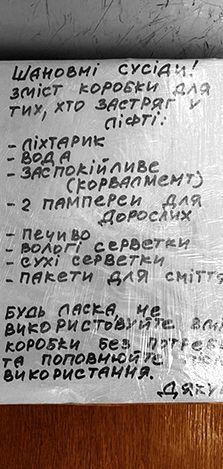 Шановні сусіди!
Зміст коробки для
тих, хто застряг у
ліфті:
- ліхтарик
- вода
- заспокійливе
(корвалмент)
- 2 памперси для
дорослих
- печиво
- вологі серветки
- сухі серветки
- пакети для сміття
Будь ласка, не
використовуйте
коробки без
та поповнюйте
використання.